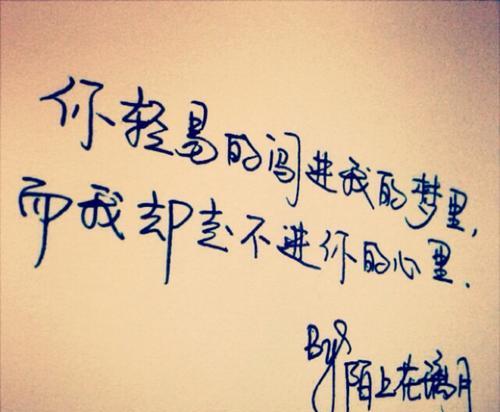 你轻易的闯进我的梦里,
而我却走不进你的心里.
By
陌上在璃月